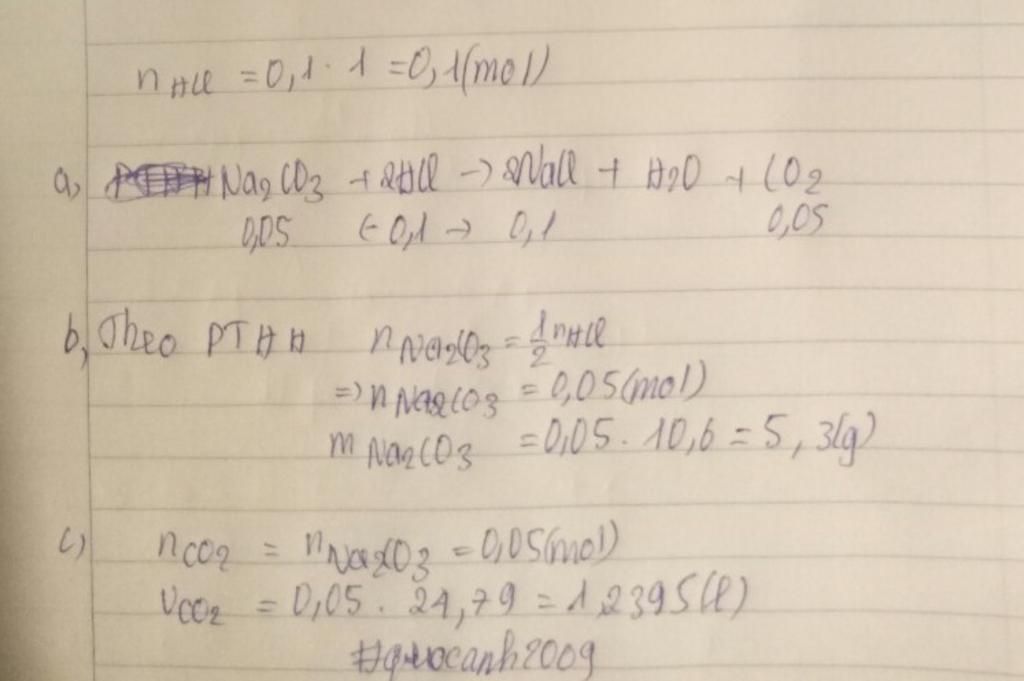 nHCl = 0,1 . 1 = 0,1(mol)
a, Na2CO3 + 2HCl → 2NaCl + H2O + CO2
0,05 ← 0,1 → 0,1 0,05
b, Theo PTHH nNa2CO3 = 1/2 nHCl
=> nNa2CO3 = 0,05(mol)
mNa2CO3 = 0,05 . 10,6 = 5,3(g)
c) nCO2 = nNa2CO3 = 0,05(mol)
VCO2 = 0,05 . 24,79 = 1,2395(l)
#quocanh2009